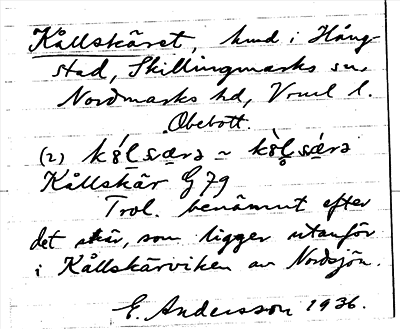 Kållskäret, hmd i Häng-
stad, Skillingmarks sn,
Nordmarks hd, Vrml l.
Obebott.
(2)
Kållskär G 79
Trol. benämnt efter
det skär, som ligger utanför
i Kållskärviken av Nordsjön.
E. Andersson 1936.